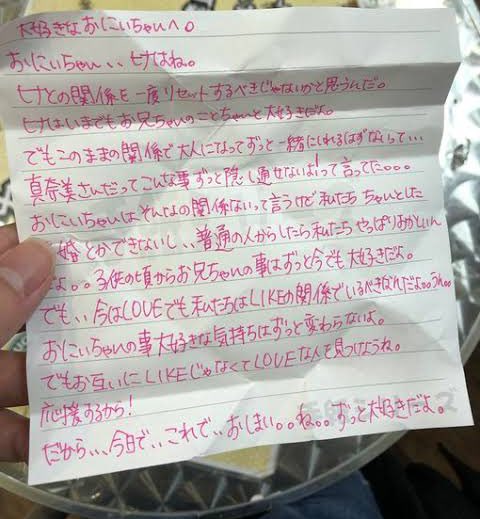 大好きなおにいちゃんへ。
おにいちゃん、、ヒナはね。
ヒナとの関係を一度リセットするべきじゃないかと思うんだ。
ヒナはいまでもお兄ちゃんのことちゃんと大好きだよ。
でもこのままの関係で大人になってずっと一緒にいれるはずないって…
真奈美さんだってこんな事ずっと隠し通せないよ!って言ってた。。。
おにいちゃんはそんなの関係ないって言うけど私たち ちゃんとした
婚とかできないし、、普通の人からしたら私たち やっぱりおかしいん
よ。。。子供の頃からお兄ちゃんの事はずっと今でも大好きだよ。
でも、、今はLOVEでも私たちはLIKEの関係でいるべきなんだよ。。うん。。
おにいちゃんの事大好きな気持ちはずっと変わらないよ。
でもお互いにLIKEじゃなくてLOVEな人を見つけようね。
応援するから!
だから、、、今日で、、これで、、おしまい。。ね。。ずっと大好きだよ。